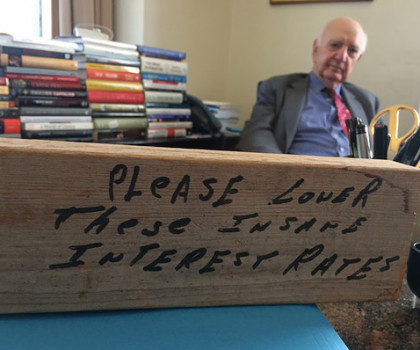 PLEASE LOWER
These INSANE
INTEREST RATES